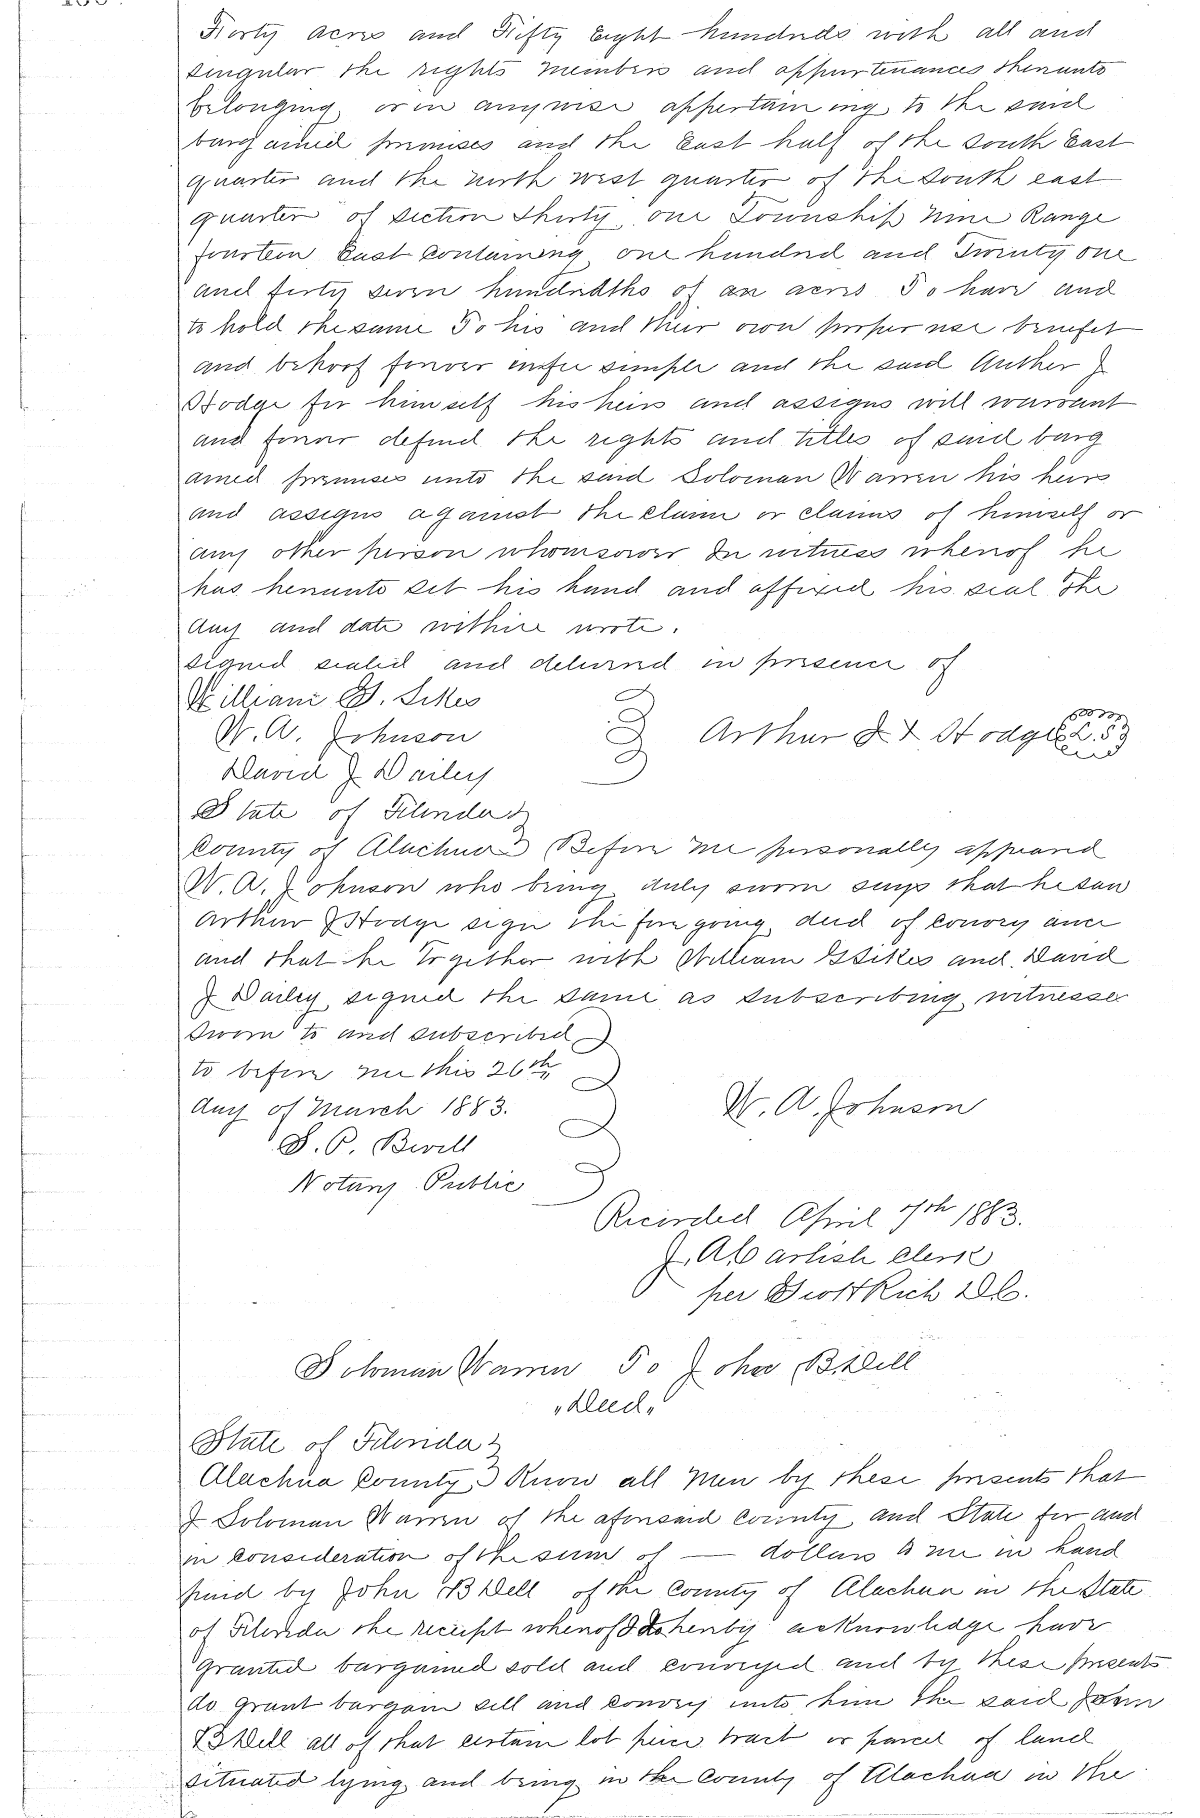 Forty acres and Fifty Eight hundreds with all and
singular the rights members and appurtenances thereunto
belonging, or in anywise appertain ing, to the said
barg ained premises and the East half of the South East
quarter and the north west quarter of the South east
quarter of Section Thirty, one Township nine Range
fourteen East Containing one hundred and Twenty one
and forty seven hundredths of an acres To have and
to hold the same To his and their own proper use benefit
and behoof forever in fee simple and the said Auther J
Hodge for him self his heirs and assigns will warrant
and forever defend the rights and titles of said barg
ained premises unto the said Soloman Warren his heirs
and assigns against the claim or claims of himself or
any other person whomsoever In witness whereof he
has hereunto set his hand and affixed his seal the
day and date within wrote.
Signed sealed and delivered in presence of
William G. Sikes
W. A. Johnson Arthur J. X Hodge L.S
David J Dailey
State of Florida
County of Alachua Before me personally appeared
W. A. Johnson who being duly sworn says that he saw
Arthur J Hodge sign the fore going, deed of convey ance
and that he Together with William G Sikes and David
J Dailey, signed the same as subscribing witnesses
Sworn to and subscribed
to before me this 26th
day of March 1883. W. A. Johnson
S. P. Bevill
Notary Public
Recorded April 7th 1883.
J. A. Carlish Clerk
per Rich D.C.
Soloman Warren To John B. Dell
"Deed"
State of Florida
Alachua County Know all Men by these presents that
I Soloman Warren of the aforesaid County and State for and
in consideration of the sum of — dollars to me in hand
paid by John B Dell of the County of Alachua in the State
of Florida the receipt whereof I do hereby acknowledge have
granted bargained sold and conveyed and by these presents
do grant bargain sell and convey unto him the said John
B Dell all of that certain lot piece tract or parcel of land
situated lying and being in the County of Alachua in the